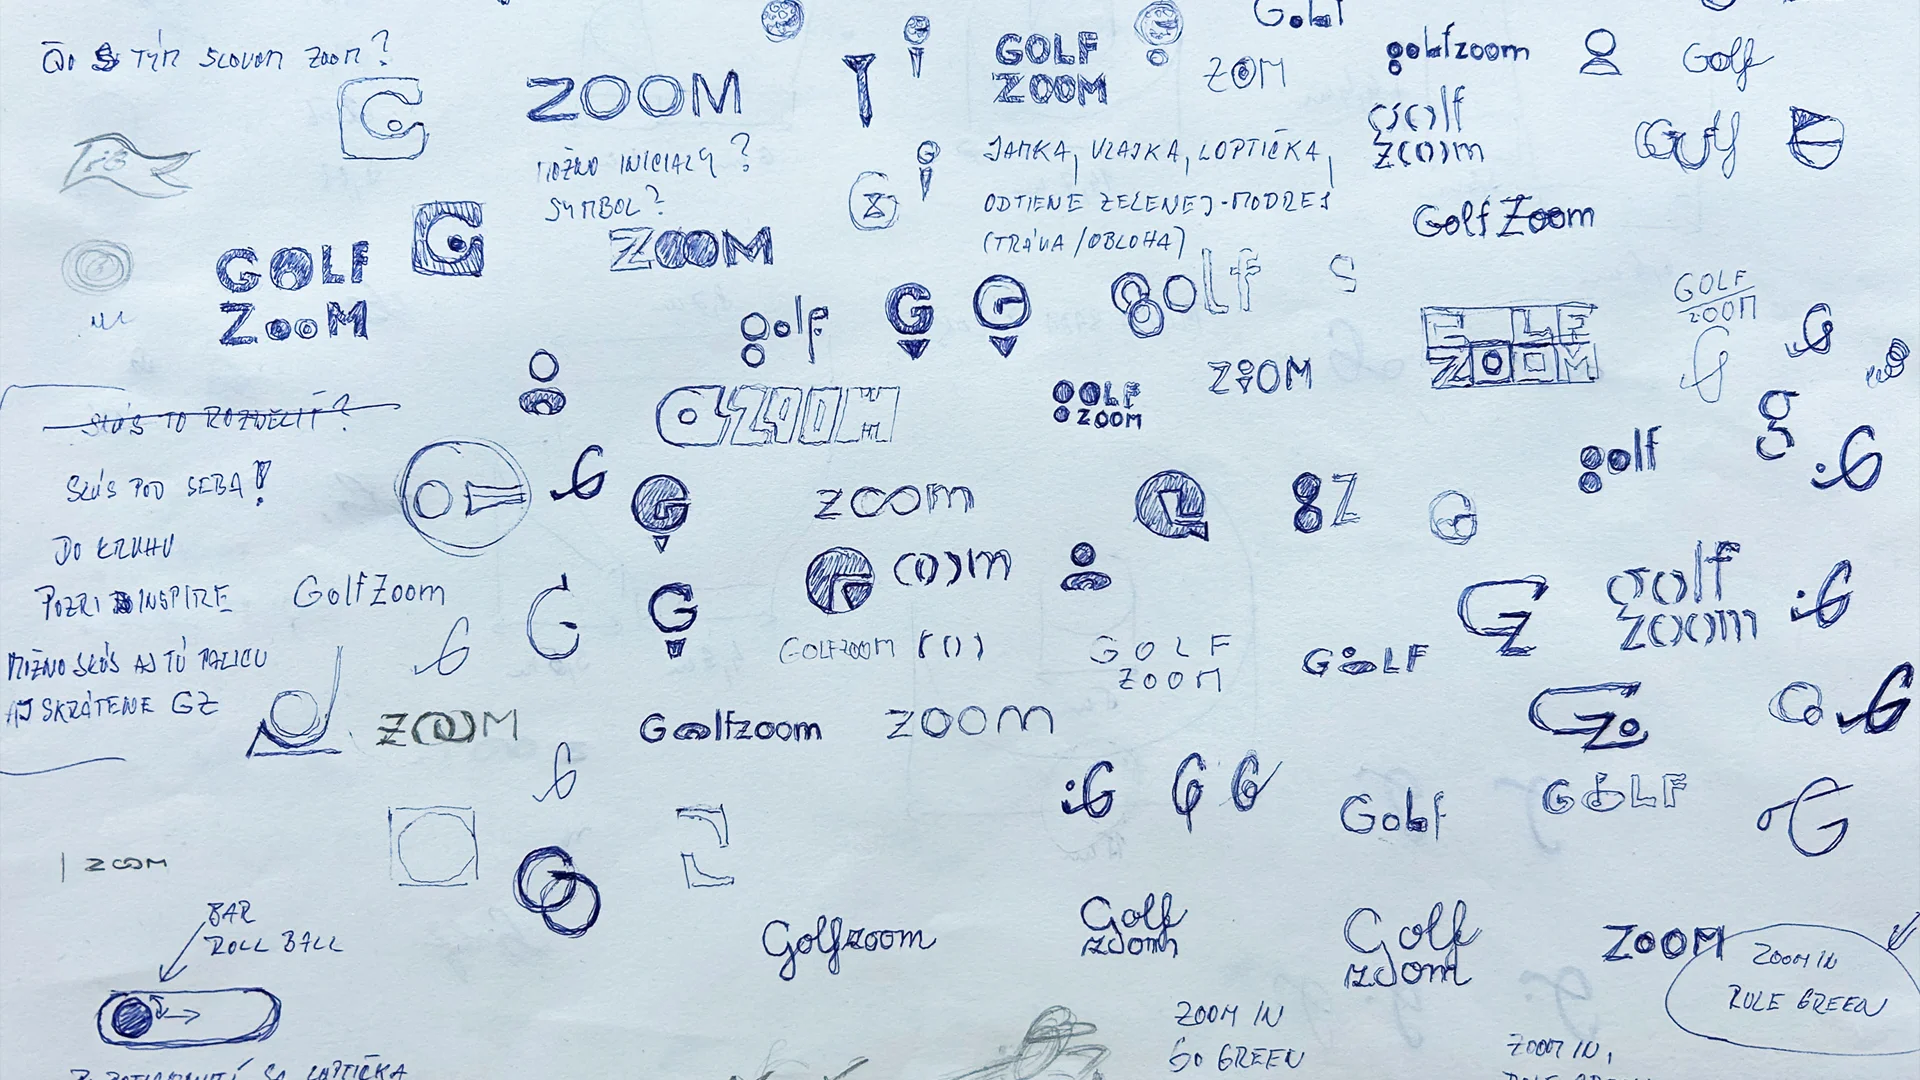 TÝM SLOVOM ZOOM?
ZOOM
MOŽNO INICIALY?
SYMBOL?
GOLF
ZOOM
ZOOM
JAMKA, VLAJKA, LOPTIČKA,
ODTIENE ZELENEJ-MODREJ
(TRÁVA/OBLOHA)
Golf
golfzoom
Golf
golf
zoom
Golf
GolfZoom
GOLF
ZOOM
ZOOM
golf
G
G
golf
S
GOLF
ZOOM
GOLF
ZOOM
ZOOM
ZOOM
GOLF
ZOOM
golf
g
G
SKÚS TO ROZDELIŤ?
SKÚS POD SEBA!
DO KRUHU
POZRI INSPIRE
MOŽNO SKÚS AJ TÚ PALICU
AJ SKRÁTENE GZ
G
G
zoom
8Z
G
GolfZoom
G
G
GOLFZOOM
GOLF
ZOOM
GOLF
GZ
golf
zoom
G
ZOOM
Golfzoom
ZOOM
GZ
G
G
G
G
Golf
GOLF
G
| ZOOM
BAR
ROLL BALL
G
Golfzoom
Golf
zoom
Golf
zoom
ZOOM
ZOOM IN
RULE GREEN
ZOOM IN
GO GREEN
ZOOM IN,
SA LOPTIČKA